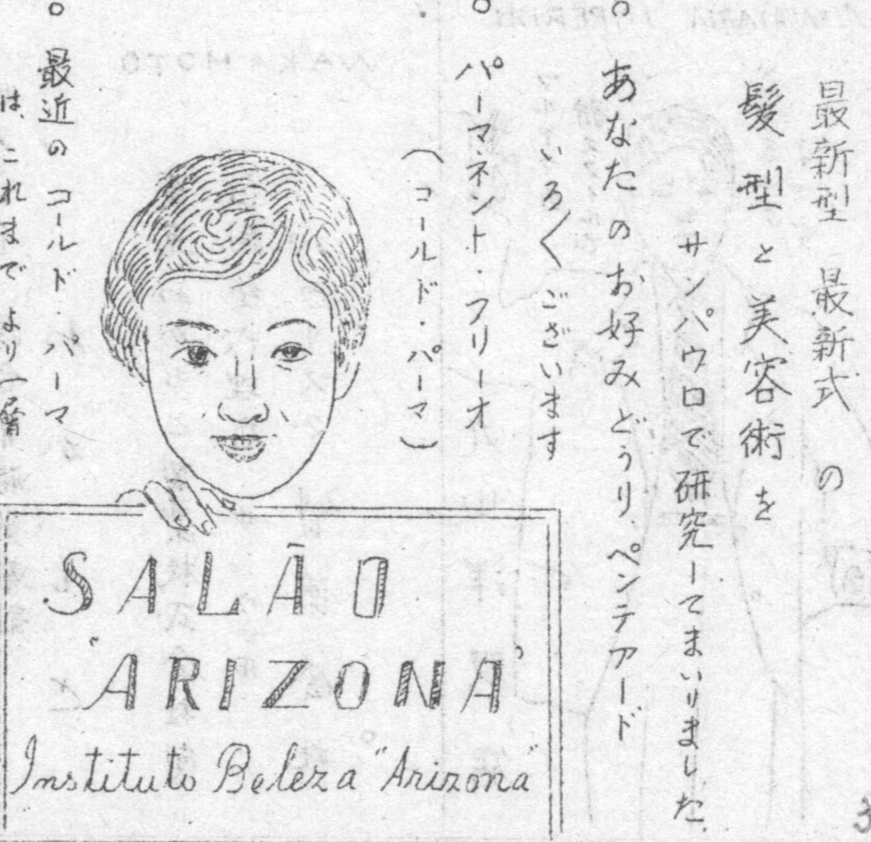 最新型 最新式 の
髪型と美容術を
サンパウロで研究してまいりました
。あなたのお好みどうり、ペンテアード
いろ〱ございます
。パーマネント・フリーオ
(コールド・パーマ)
。最近のコールド・パーマ
は、これまでより一層
SALÃO
"ARIZONA"
Instituto Beleza "Arizona"